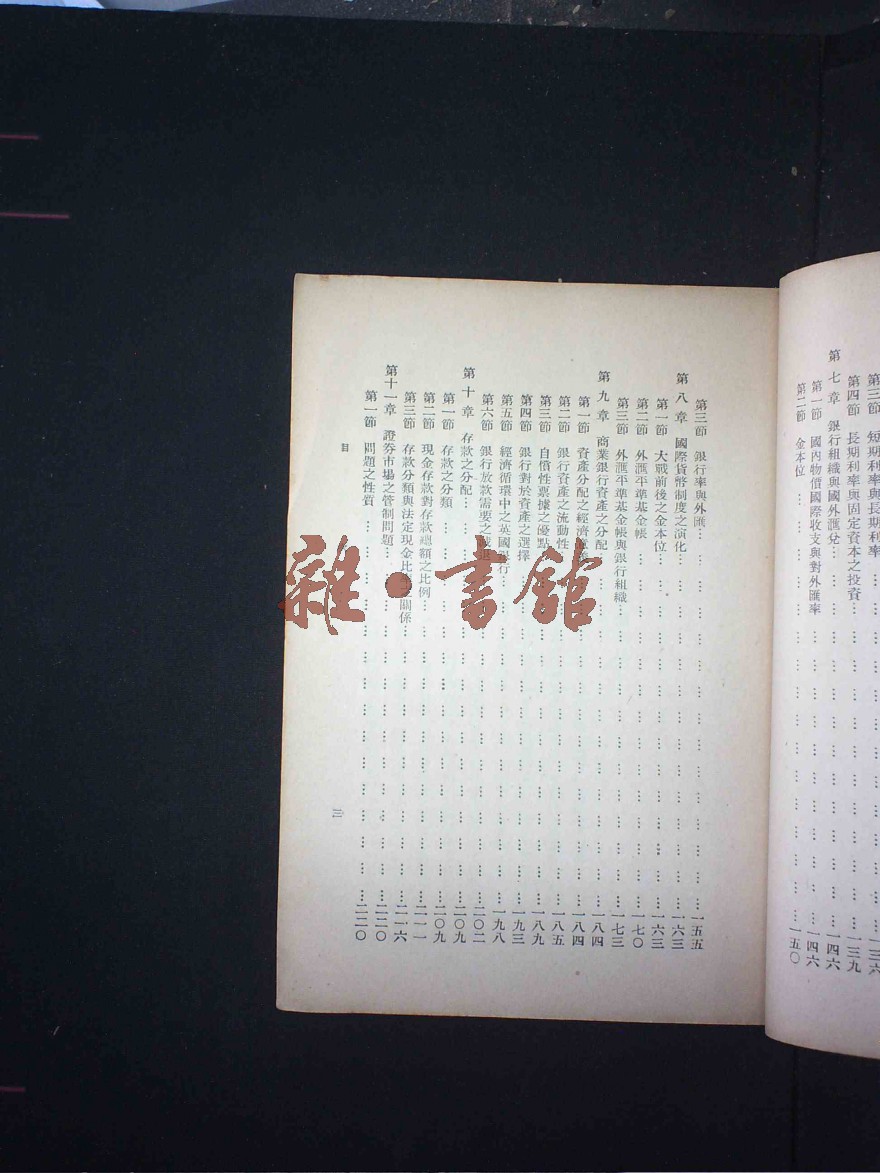 第三節 短期利率與長期利率……一三六
第四節 長期利率與固定資本之投資……一三九
第七章 銀行組織與國外匯兌……一四六
第一節 國內物價國際收支與對外匯率……一四六
第二節 金本位……一五〇
第三節 銀行率與外匯……一五五
第八章 國際貨幣制度之演化……一六三
第一節 大戰前後之金本位……一六三
第二節 外匯平準基金帳……一七〇
第三節 外匯平準基金帳與銀行組織……一七三
第九章 商業銀行資產之分配……一八四
第一節 資產分配之經濟……一八四
第二節 銀行資產之流動性……一八五
第三節 自償性票據之優點……一八九
第四節 銀行對於資產之選擇……一九三
第五節 經濟循環中之英國銀行……一九八
第六節 銀行放款需要之……二〇二
第十章 存款之分配……二〇九
第一節 存款之分類……二〇九
第二節 現金存款對存款總額之比例……二一一
第三節 存款分類與法定現金比關係……二一六
第十一章 證券市場之管制問題……二二〇
第一節 問題之性質……二二〇
目
三
雜·書館